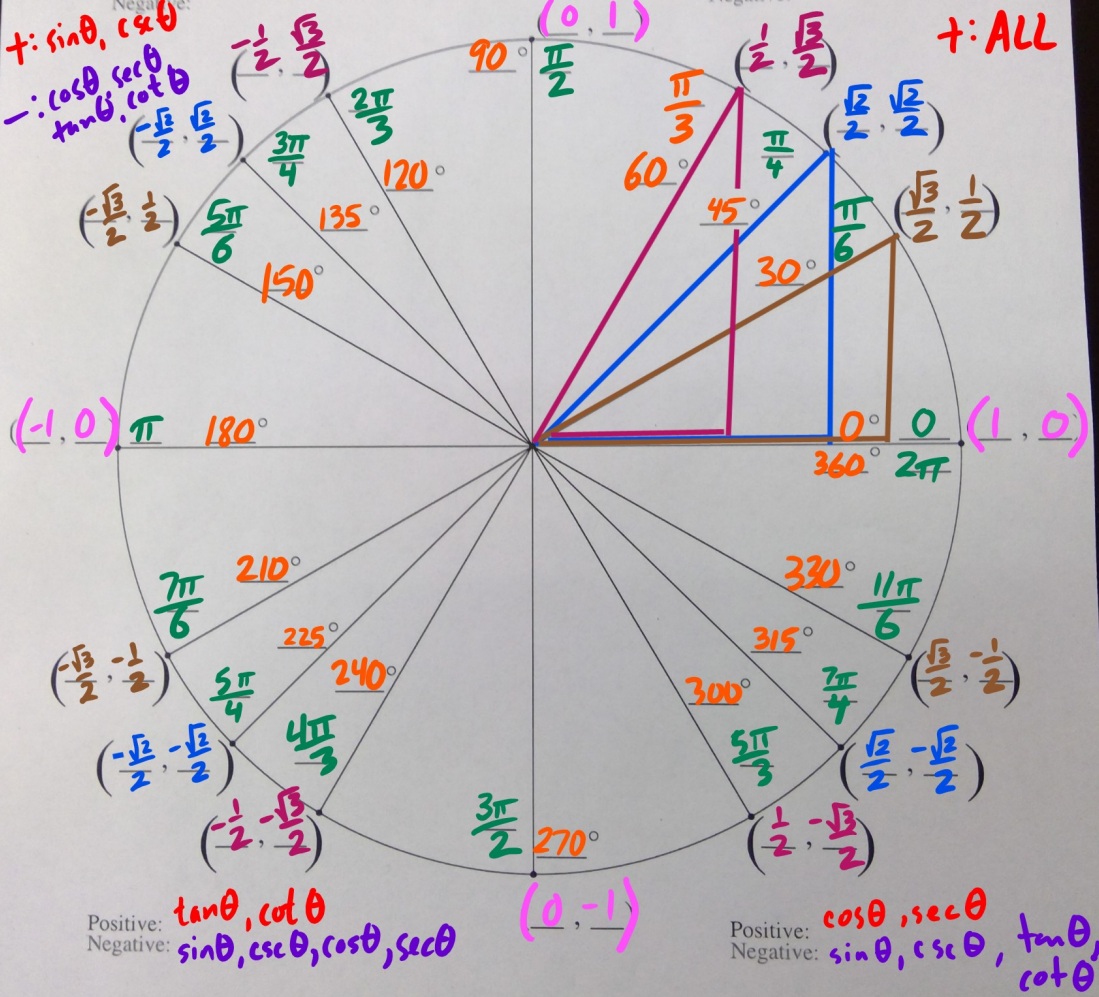 Negative:
Negative:
+: sinθ, cscθ
-: cosθ, secθ
tanθ, cotθ
+: ALL
(0, 1)
90° π/2
(1/2, √3/2)
π/3
60°
(√2/2, √2/2)
π/4
45°
(√3/2, 1/2)
π/6
30°
(-1/2, √3/2)
2π/3
120°
(-√2/2, √2/2)
3π/4
135°
(-√3/2, 1/2)
5π/6
150°
(-1, 0) π 180°
0° 0 (1, 0)
360° 2π
210°
7π/6
(-√3/2, -1/2)
225°
5π/4
(-√2/2, -√2/2)
240°
4π/3
(-1/2, -√3/2)
3π/2 270°
(0, -1)
330°
11π/6
(√3/2, -1/2)
315°
7π/4
(√2/2, -√2/2)
300°
5π/3
(1/2, -√3/2)
Positive: tanθ, cotθ
Negative: sinθ, cscθ, cosθ, secθ
Positive: cosθ, secθ
Negative: sinθ, cscθ, tanθ,
cotθ